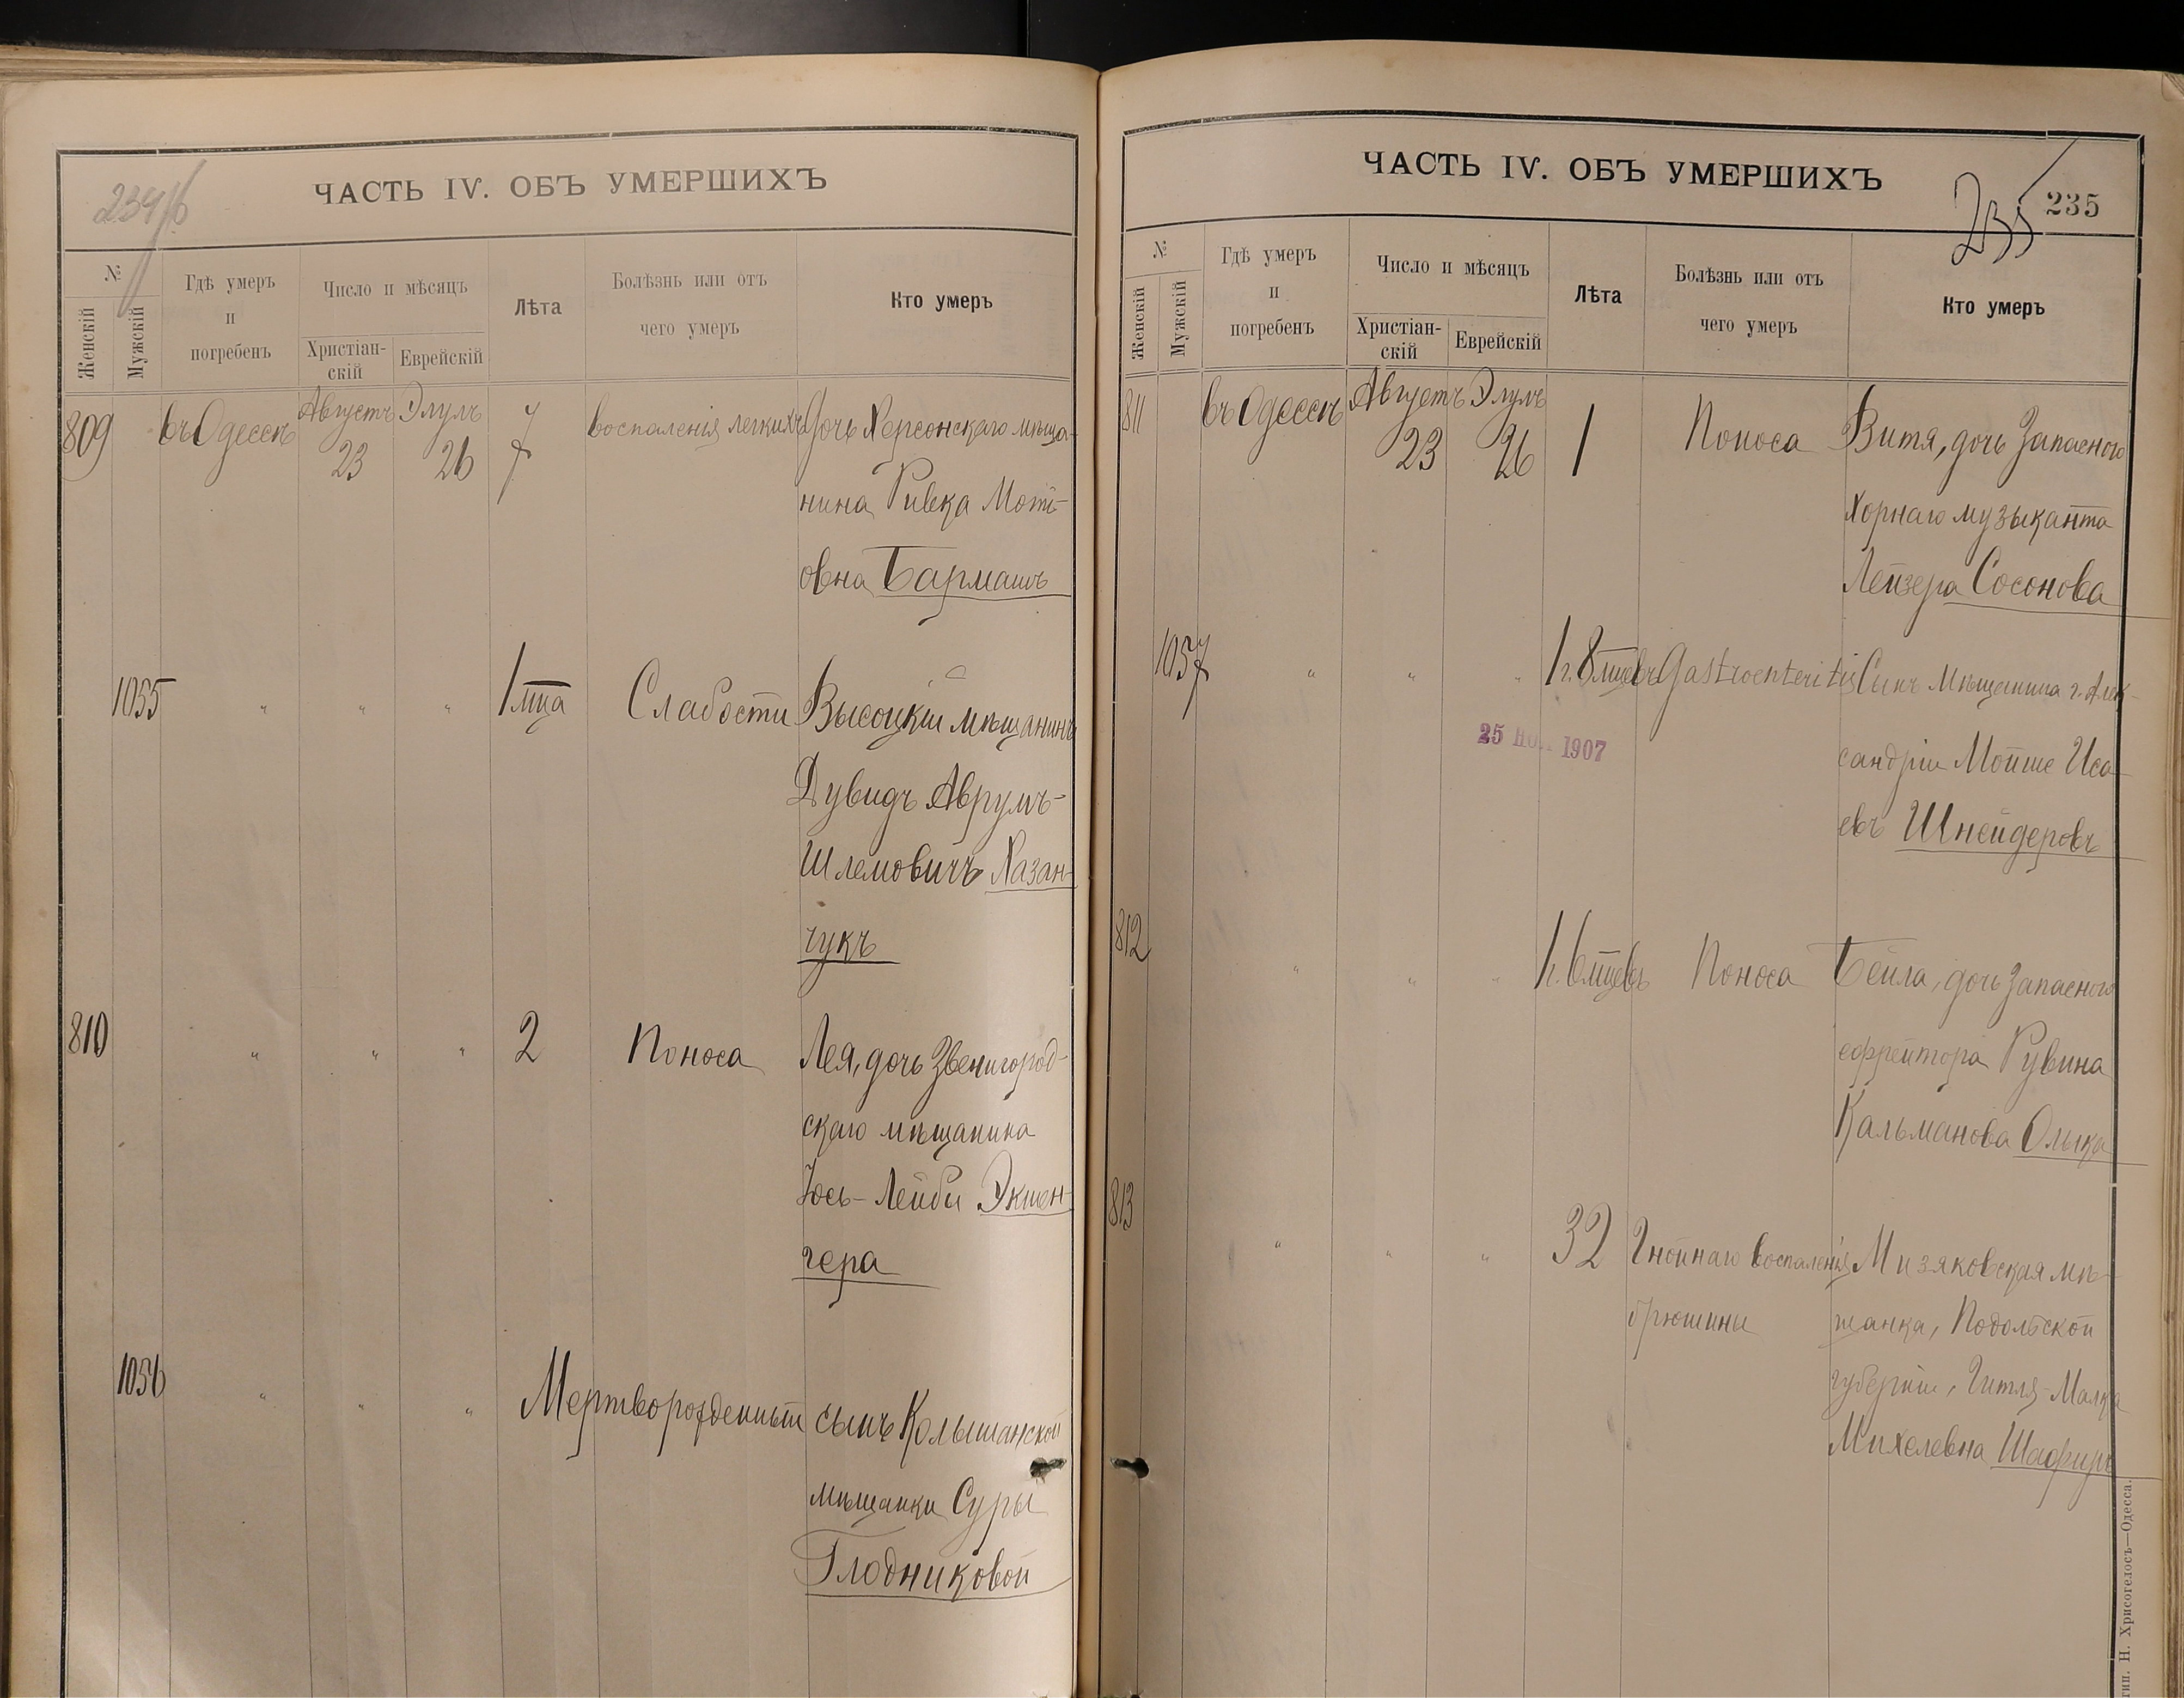 234/б
ЧАСТЬ IV. ОБЪ УМЕРШИХЪ
№
Женскій
Мужскій
Гдѣ умеръ
и
погребенъ
Число и мѣсяцъ
Христіан-
скій
Еврейскій
Лѣта
Болѣзнь или отъ
чего умеръ
Кто умеръ
809 въ Одессѣ Августъ Элулъ 7 воспаленія легкихъ Дочь Херсонскаго мѣща-
23 26
нина Ривка Мот-
овна Бармашъ
1055 " " " 1 мца Слабости Высоцкій мѣщанинъ
Дувидъ Аврумъ-
Шлемовичъ Хазан-
чукъ
810 " " " 2 Поноса Лея, дочь Звенигород-
скаго мѣщанина
Іось-Лейби Экшен-
гера
1056 " " " Мертворожденный сынъ Колышанской
мѣщанки Суры
Глодниковой
ЧАСТЬ IV. ОБЪ УМЕРШИХЪ
235
235
№
Женскій
Мужскій
Гдѣ умеръ
и
погребенъ
Число и мѣсяцъ
Христіан-
скій
Еврейскій
Лѣта
Болѣзнь или отъ
чего умеръ
Кто умеръ
811 въ Одессѣ Августъ Элулъ 1 Поноса Витя, дочь Запасного
23 26
хорнаго музыканта
Лейзера Сосонова
1057 " " " 1 г. 8 мцевъ Gastroenteritis Сынъ Мѣщанина г. Алек-
25 НОЯ 1907
сандріи Мойше Иса-
евъ Шнейдеровъ
812 " " " 1 г. 6 мцевъ Поноса Бейла, дочь Запасного
ефрейтора Рувина
Кальманова Олыка
813 " " " 32 Гнойнаго воспаленія Мизяковская мѣ-
брюшины щанка, Подольской
губерніи, Гитля-Малка
Михелевна Шафиръ
тип. Н. Хрисогелосъ—Одесса.